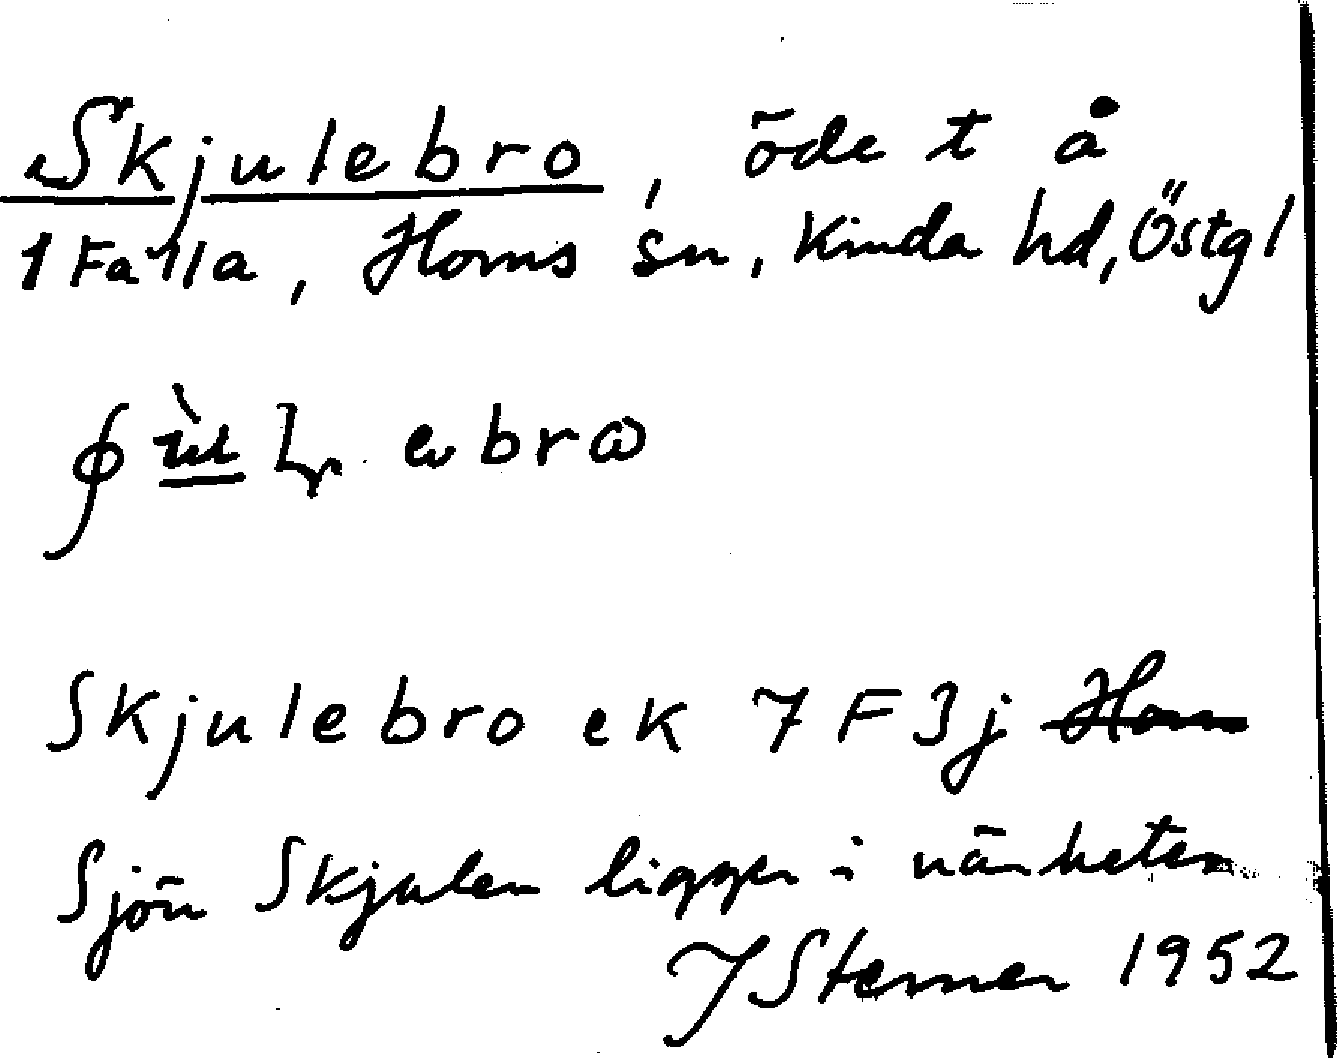 Skjulebro, öde t å
1 Falla, Horns sn, Kinda hd, Östgl
Skjulebro ek 7 F 3j Horn
Sjön Skjulen ligger i närheten
J Sterner 1952